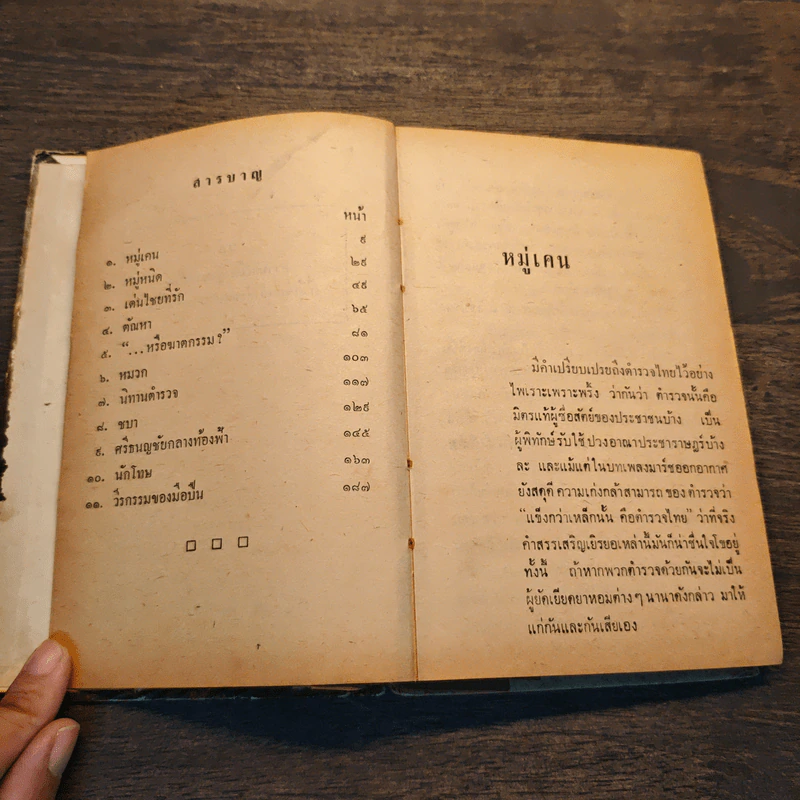 สารบาญ
หน้า
๑. หมู่เคน ๙
๒. หมู่หนิด ๒๙
๓. เด่นไชยที่รัก ๔๙
๔. ตัณหา ๖๕
๕. “...หรือฆาตกรรม?” ๘๑
๖. หมวก ๑๐๓
๗. นิทานตำรวจ ๑๑๗
๘. ชบา ๑๒๙
๙. ศรีธนญชัยกลางท้องฟ้า ๑๔๕
๑๐. นักโทษ ๑๖๓
๑๑. วีรกรรมของมือปืน ๑๘๗
หมู่เคน
มีคำเปรียบเปรยถึงตำรวจไทยไว้อย่าง
ไพเราะเพราะพริ้ง ว่ากันว่า ตำรวจนั้นคือ
มิตรแท้ผู้ซื่อสัตย์ของประชาชนบ้าง เป็น
ผู้พิทักษ์รับใช้ปวงอาณาประชาราษฎร์บ้าง
ละ และแม้แต่ในบทเพลงมาร์ชออกอากาศ
ยังสดุดี ความเก่งกล้าสามารถ ของ ตำรวจว่า
“แข็งกว่าเหล็กนั้น คือตำรวจไทย” ว่าที่จริง
คำสรรเสริญเยิรยอเหล่านี้มันก็น่าชื่นใจโขอยู่
ทั้งนี้ ถ้าหากพวกตำรวจด้วยกันจะไม่เป็น
ผู้ยัดเยียดยาหอมต่างๆ นานาดังกล่าว มาให้
แก่กันและกันเสียเอง